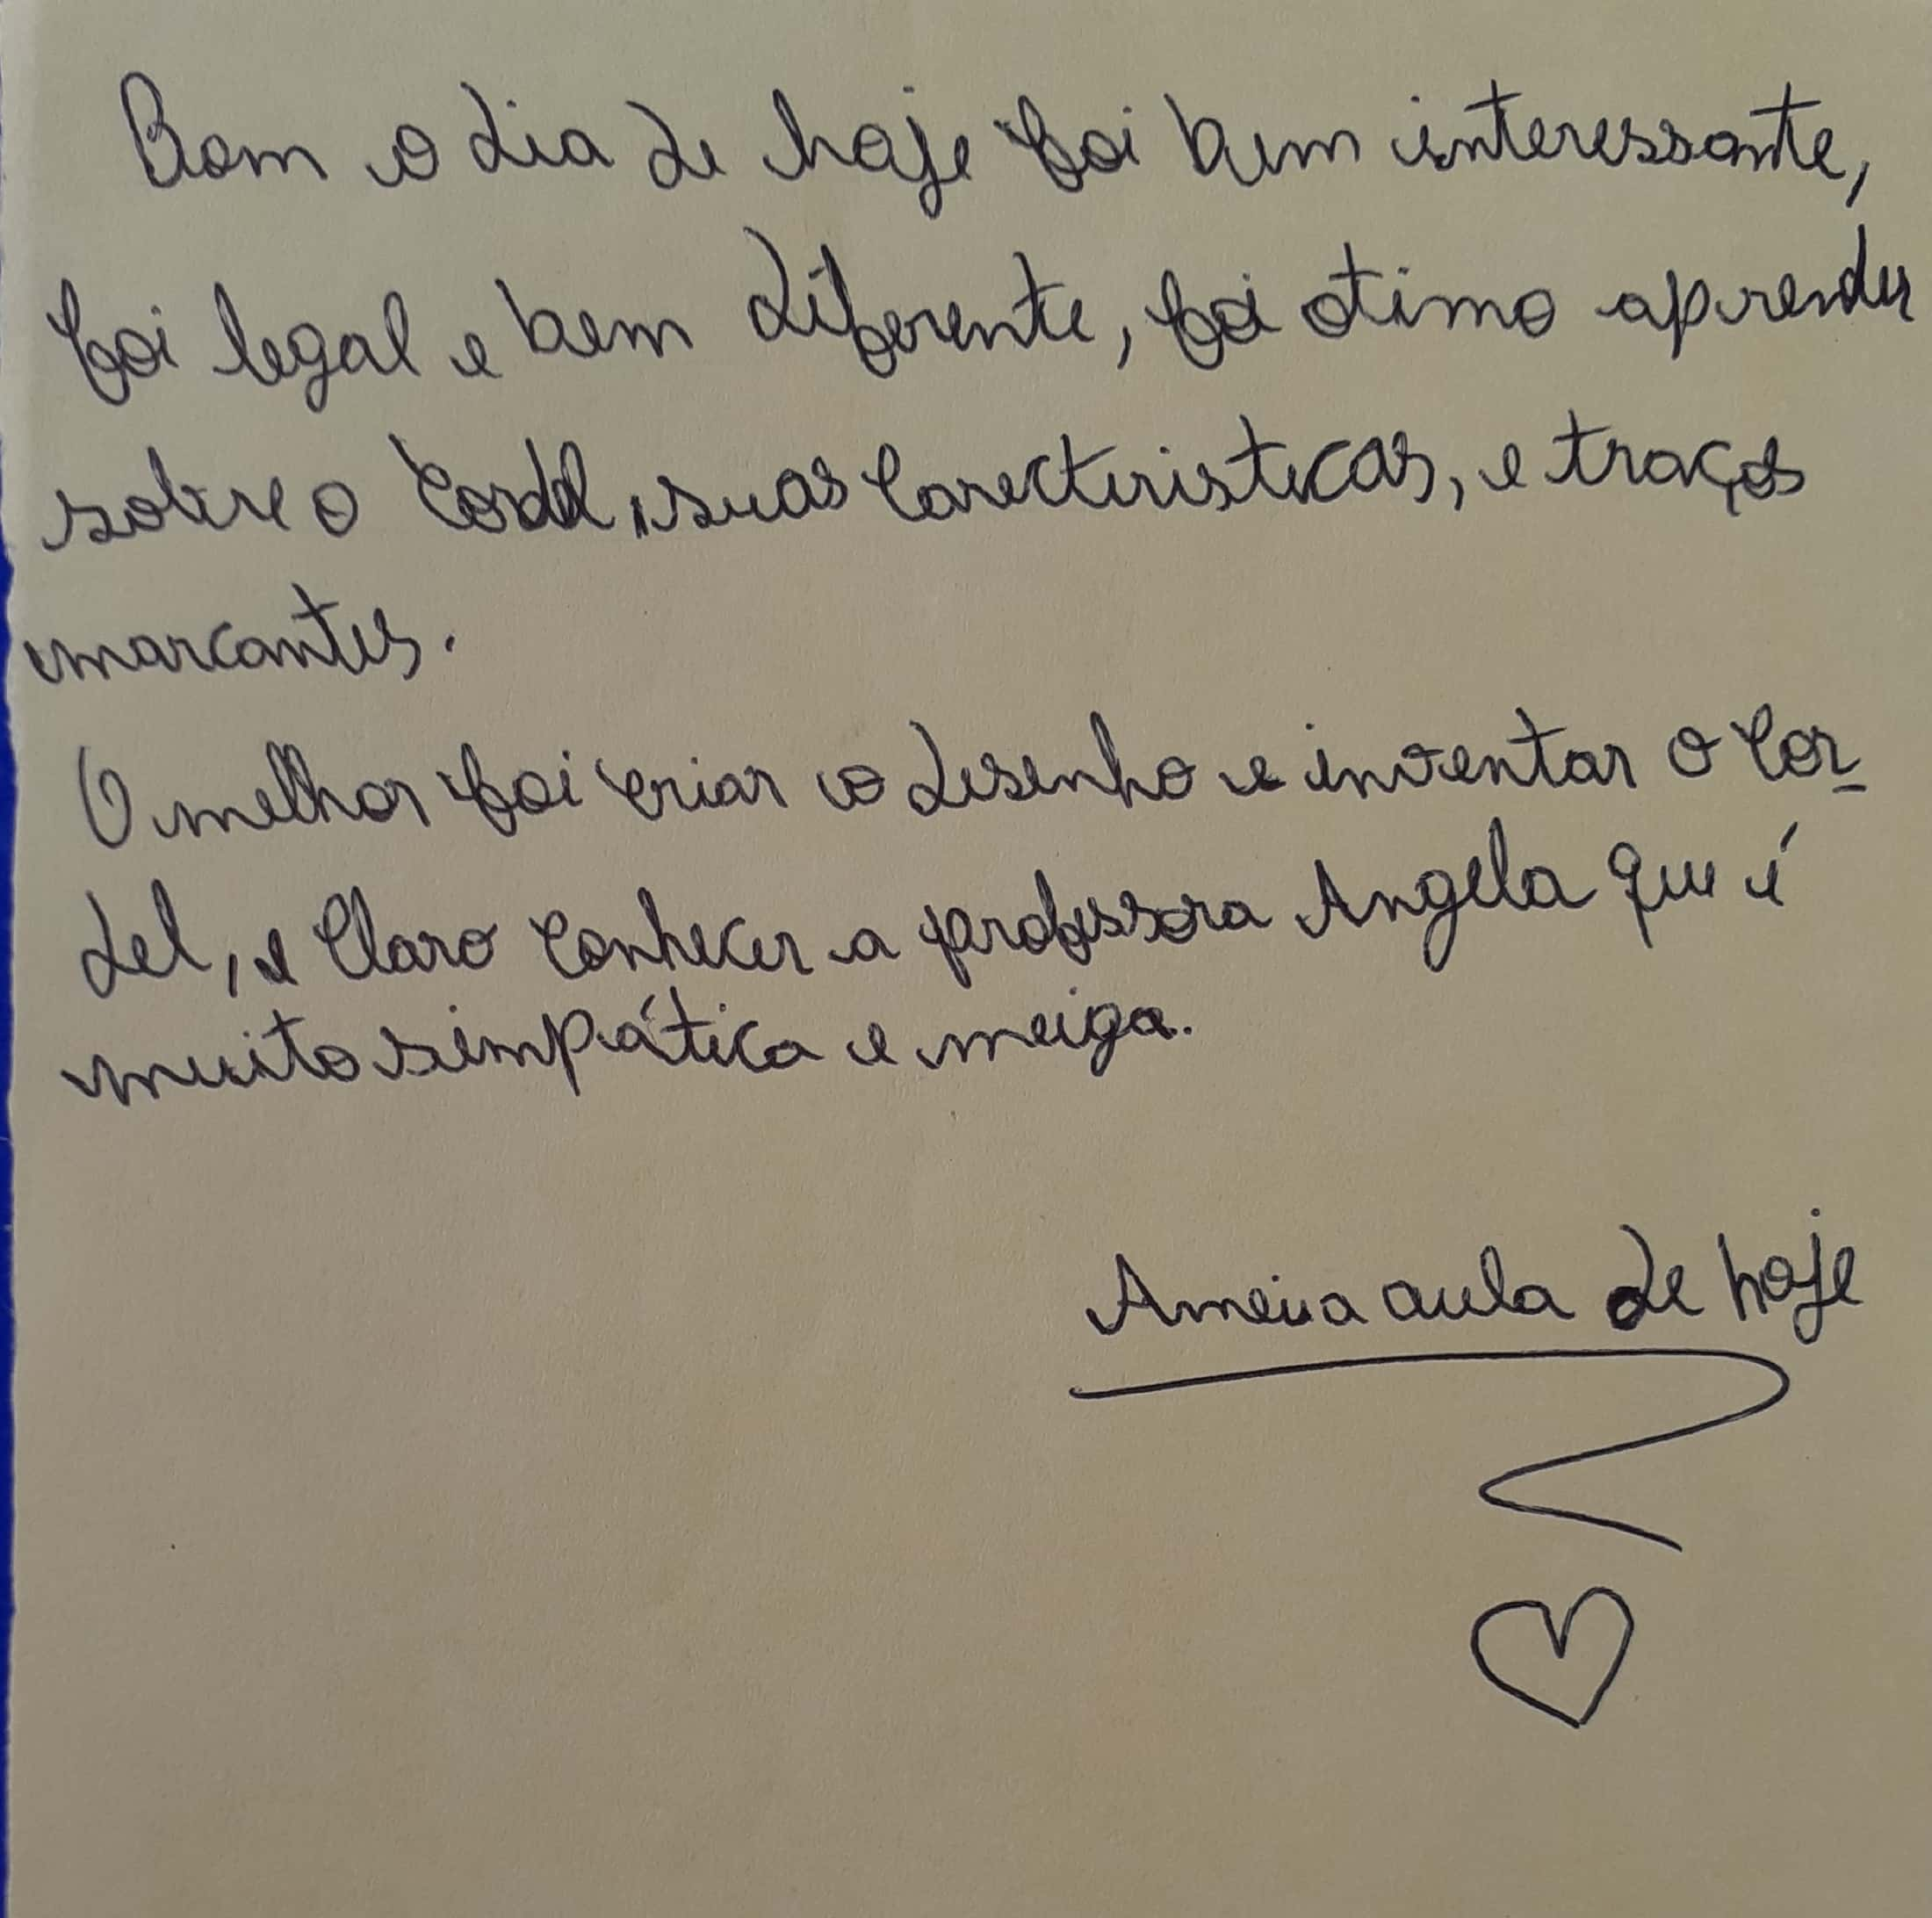 Bom o dia de hoje foi bem interessante,
foi legal e bem diferente, foi otimo aprender
sobre o Cordel, suas Carecteristicas, e traços
marcantes.
O melhor foi criar o desenho e inventar o Cor-
del, e Claro Conhecer a professora Angela que é
muito simpática e meiga.
Amei a aula de hoje